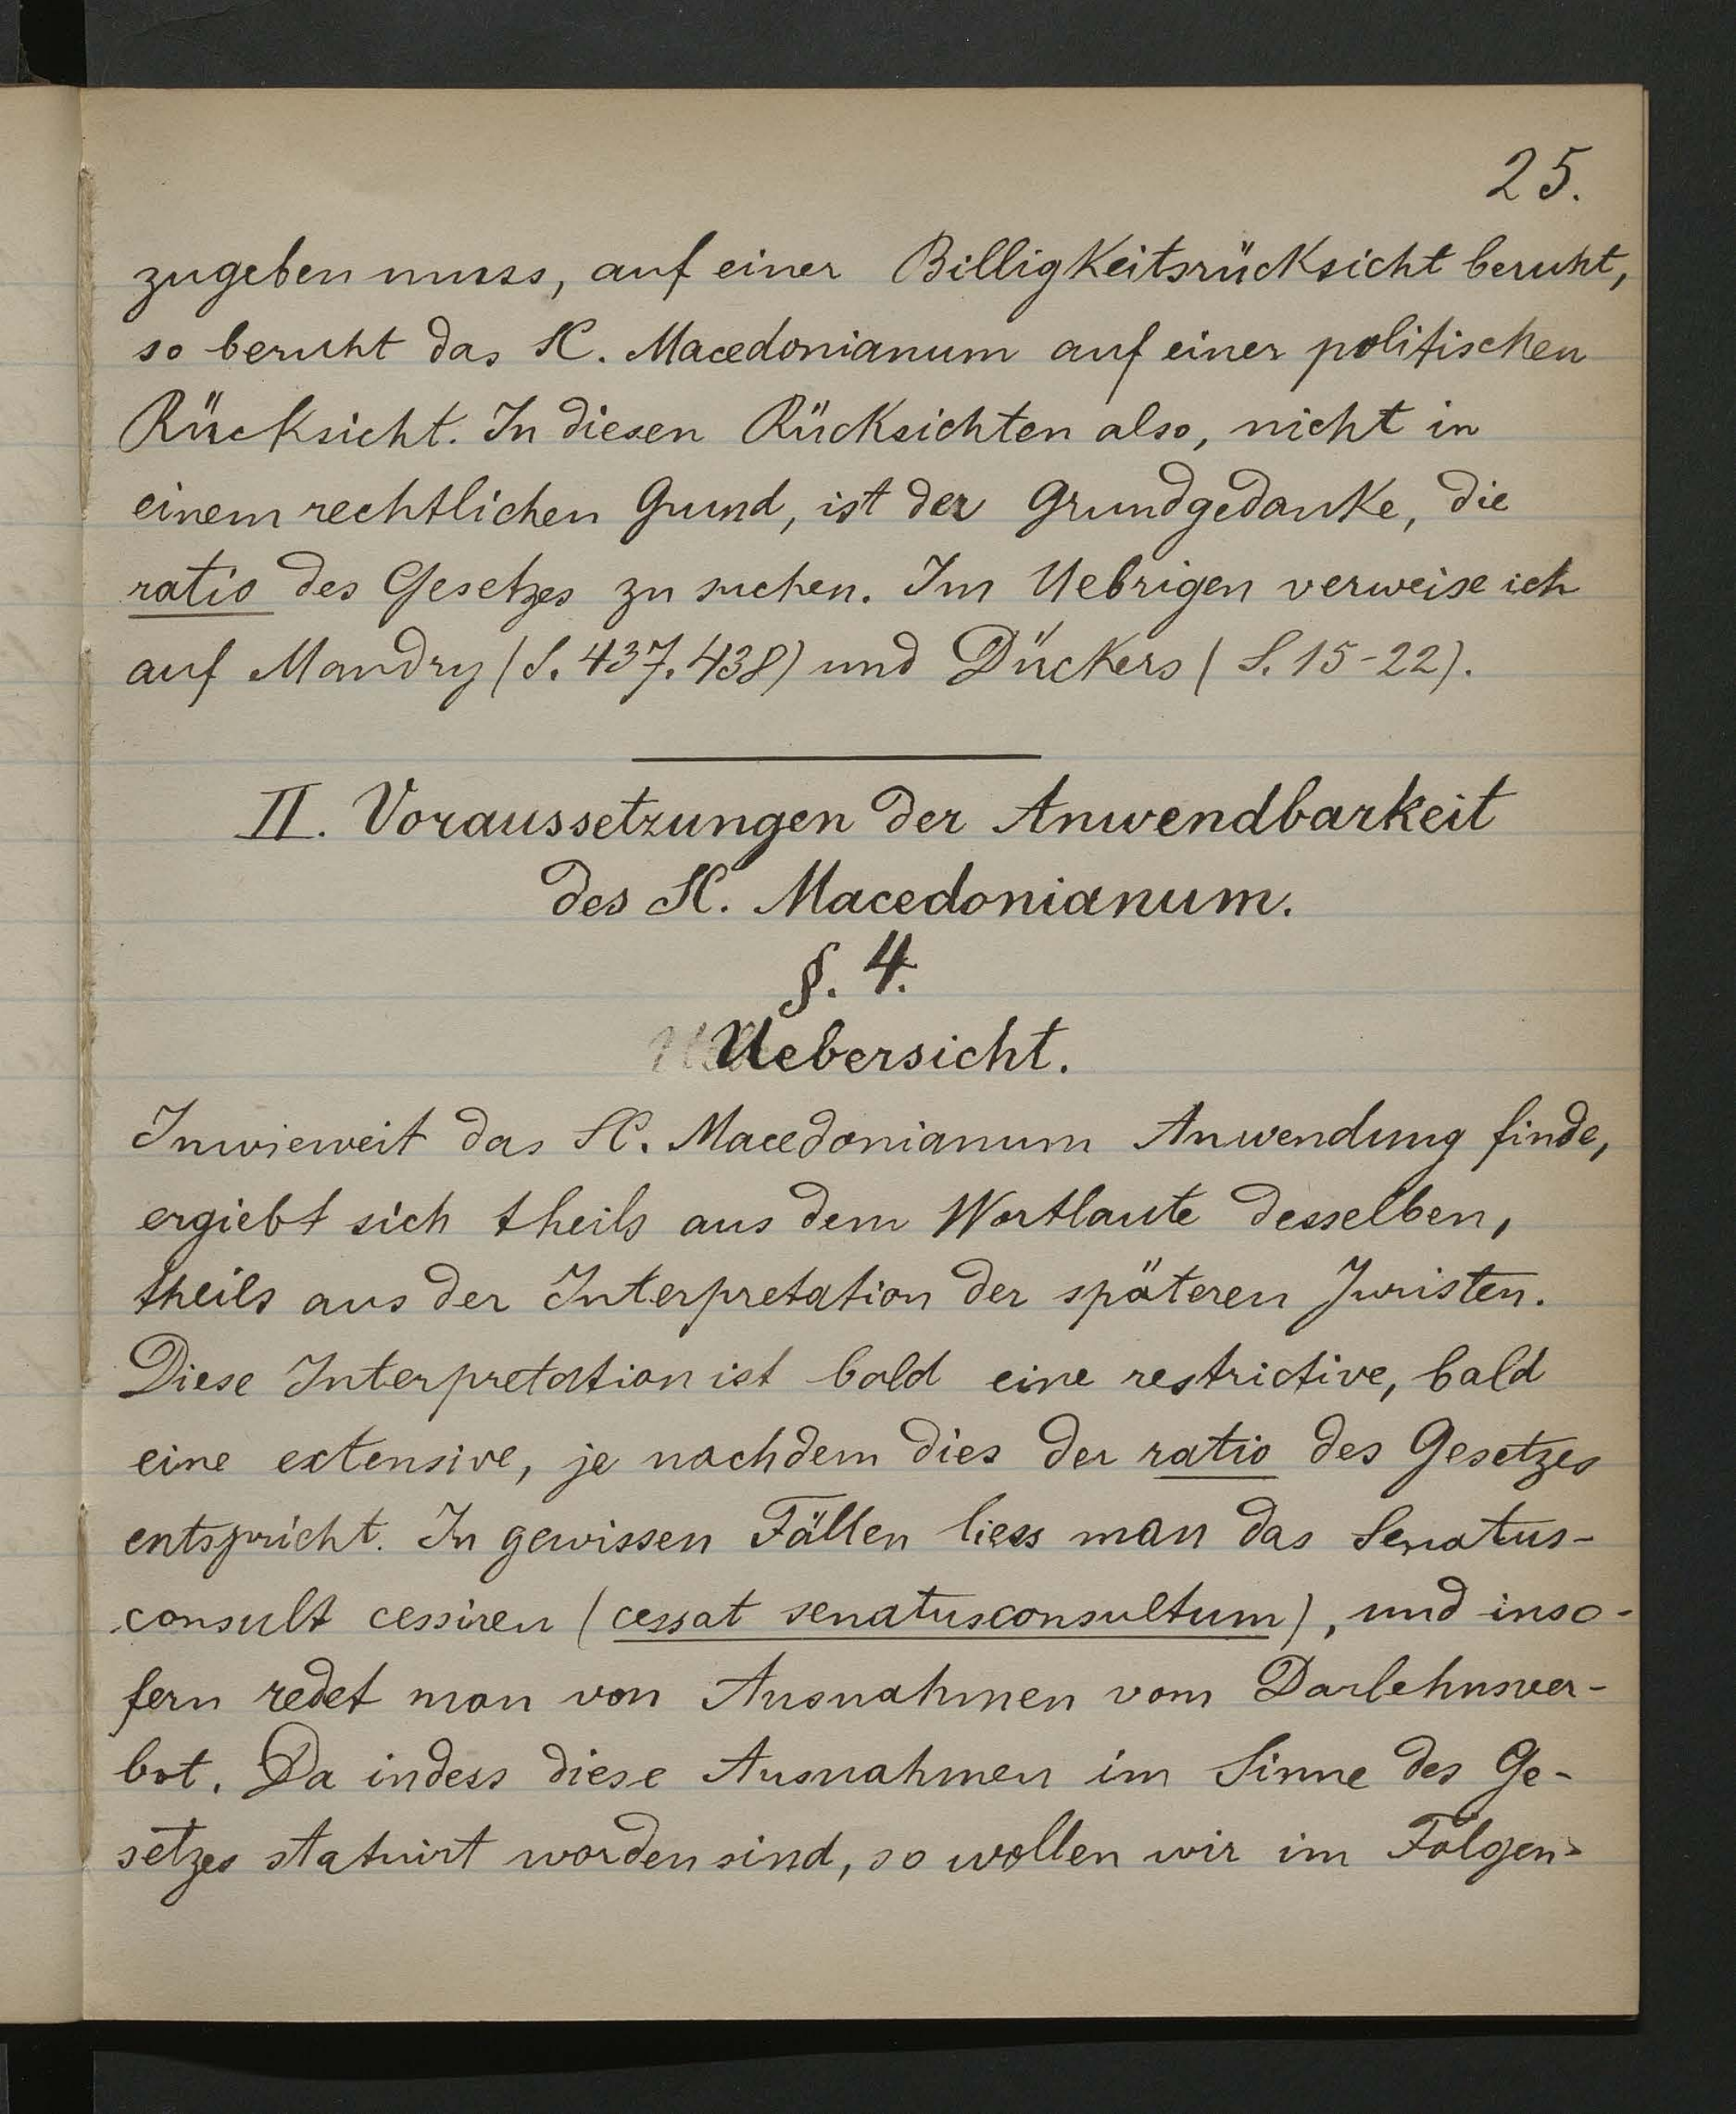 25.
zugeben muss, auf einer Billigkeitsrücksicht beruht,
so beruht das SC. Macedonianum auf einer politischen
Rücksicht. In diesen Rücksichten also, nicht in
einem rechtlichen Grund, ist der Grundgedanke, die
ratio des Gesetzes zu suchen. Im Uebrigen verweise ich
auf Mandry (S. 437. 438) und Dückers (S. 15-22).
II. Voraussetzungen der Anwendbarkeit
des SC. Macedonianum.
§. 4.
Uebersicht.
Inwieweit das SC. Macedonianum Anwendung finde,
ergiebt sich theils aus dem Wortlaute desselben,
theils aus der Interpretation der späteren Juristen.
Diese Interpretation ist bald eine restrictive, bald
eine extensive, je nachdem dies der ratio des Gesetzes
entspricht. In gewissen Fällen liess man das Senatus-
consult cessiren (cessat senatusconsultum), und inso-
fern redet man von Ausnahmen vom Darlehnsver-
bot. Da indess diese Ausnahmen im Sinne des Ge-
setzes statuirt worden sind, so wollen wir im Folgen-